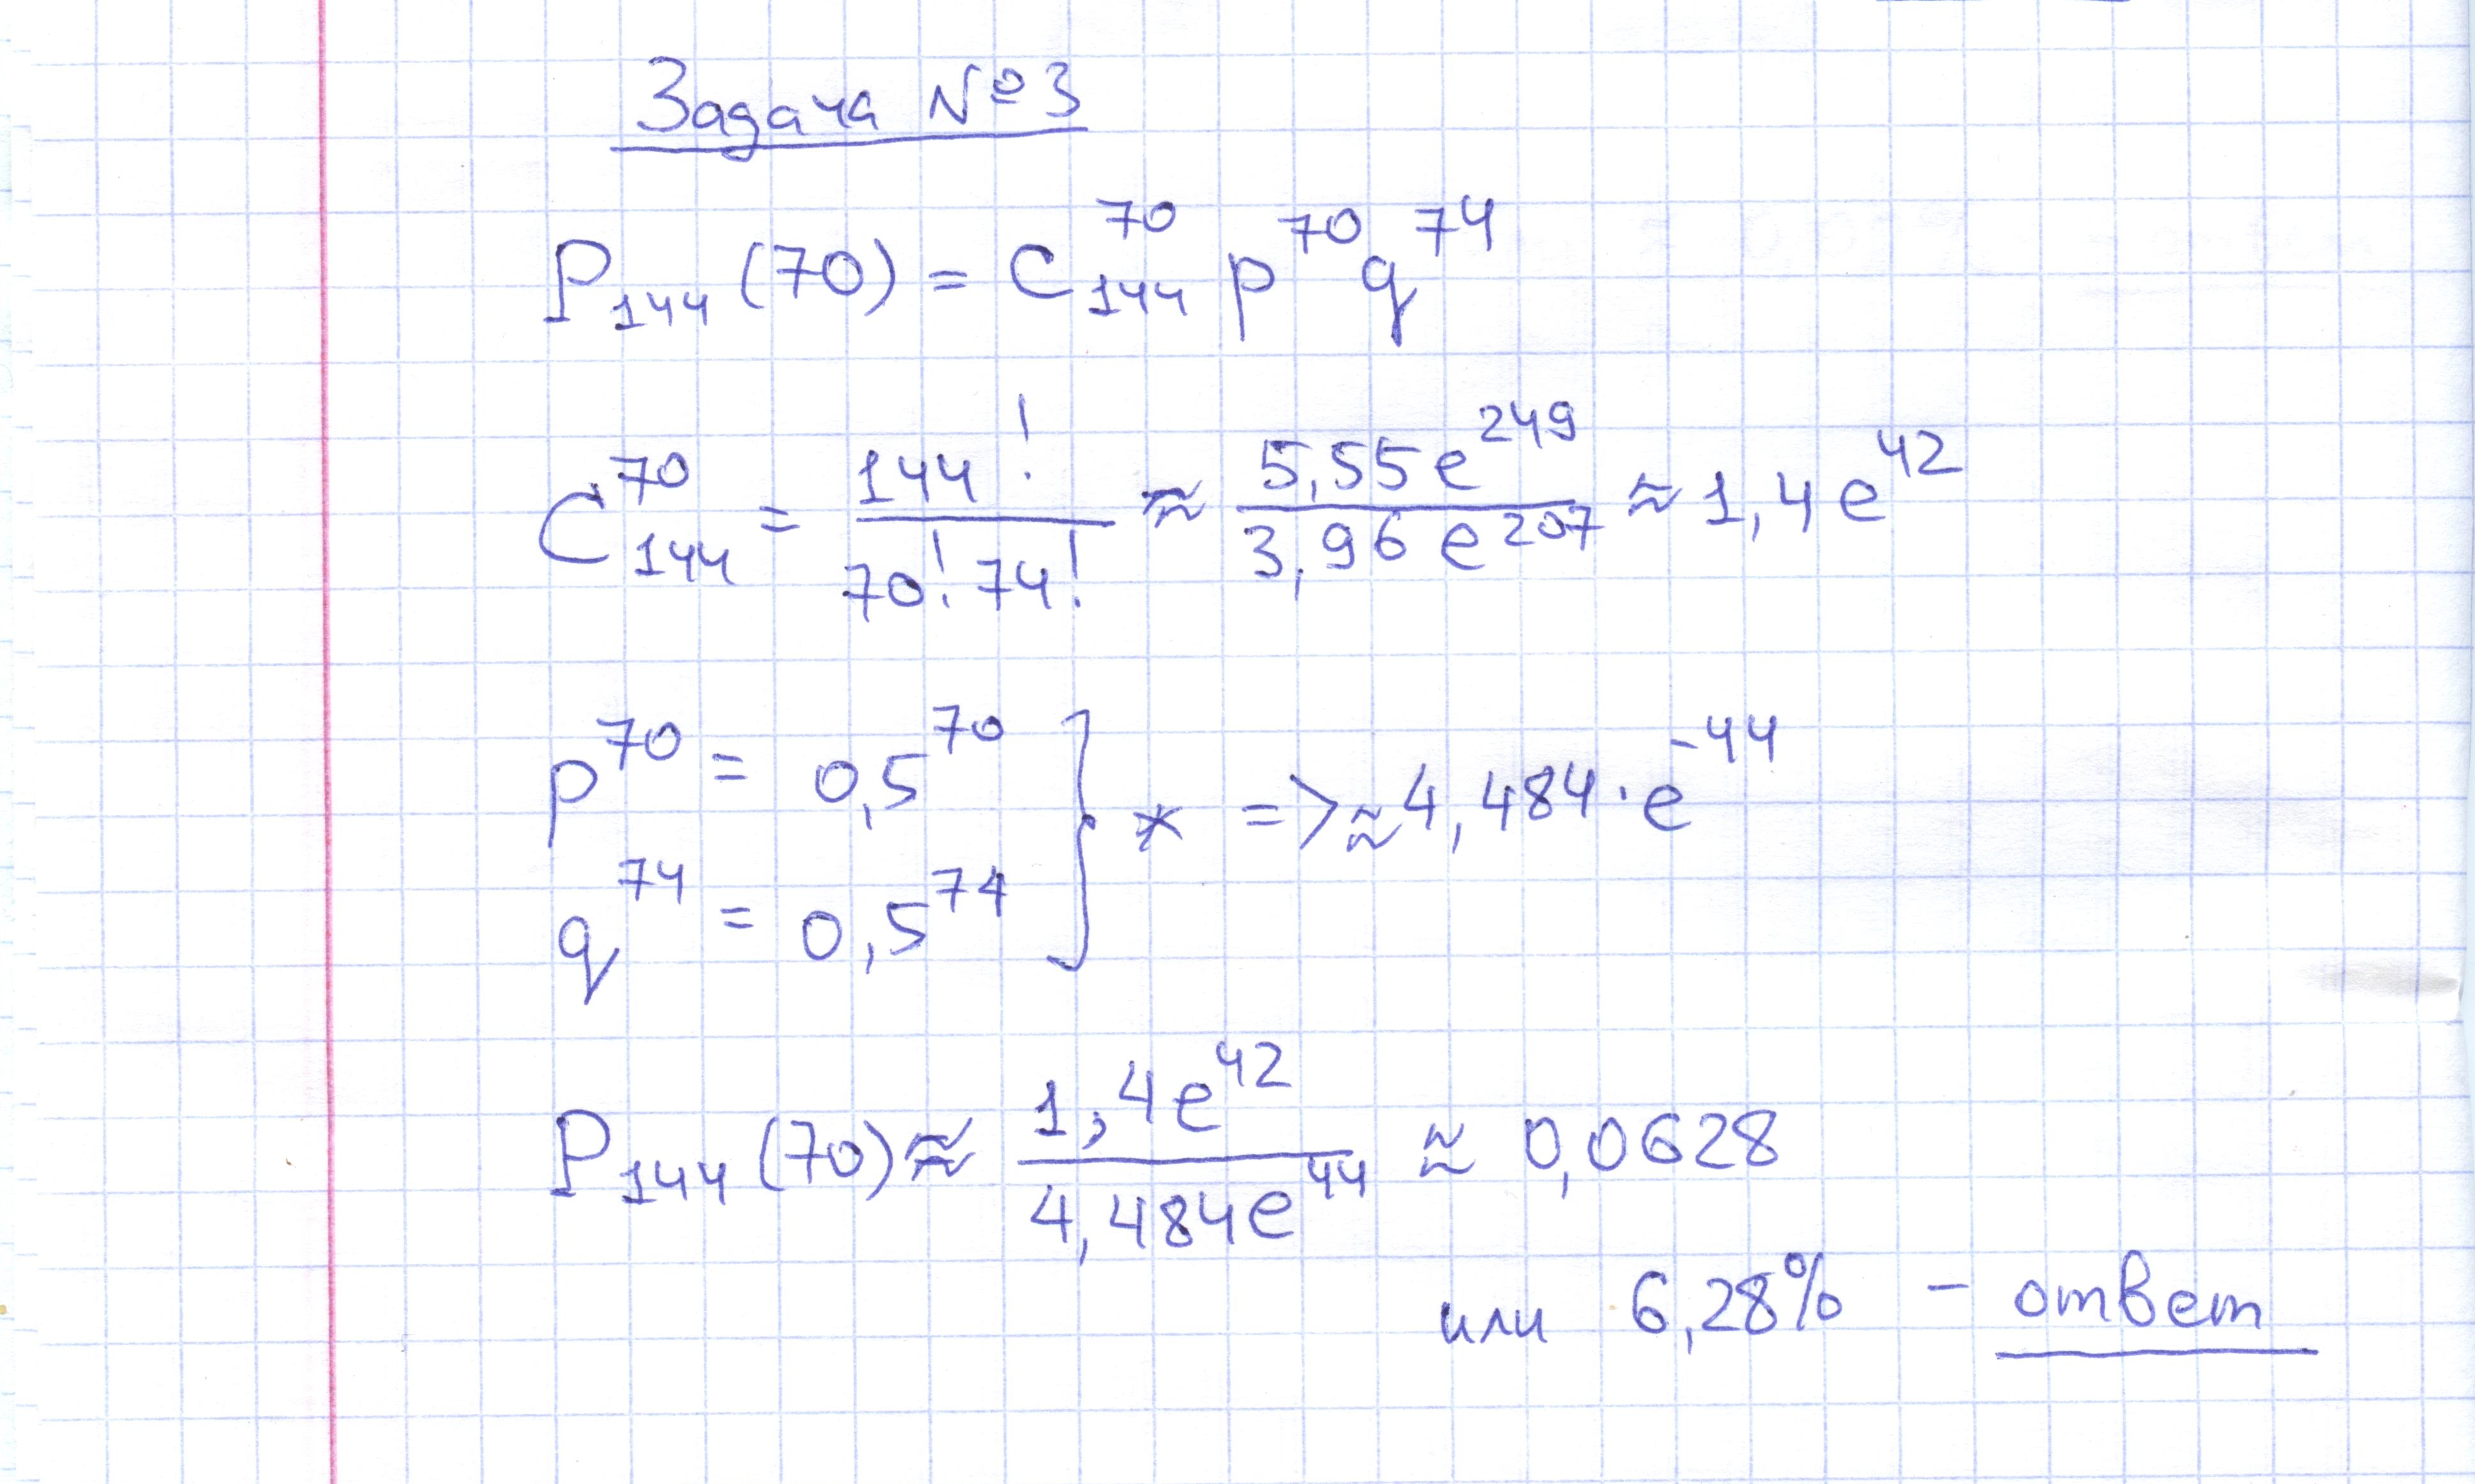 Задача №3
P₁₄₄(70) = C₁₄₄⁷⁰ p⁷⁰ q⁷⁴
C₁₄₄⁷⁰ = 144! / 70! 74! ≈ 5,55e²⁴⁹ / 3,96e²⁰⁷ ≈ 1,4e⁴²
p⁷⁰ = 0,5⁷⁰
q⁷⁴ = 0,5⁷⁴ } * => ≈ 4,484·e⁻⁴⁴
P₁₄₄(70) ≈ 1,4e⁴² / 4,484e⁴⁴ ≈ 0,0628
или 6,28% - ответ